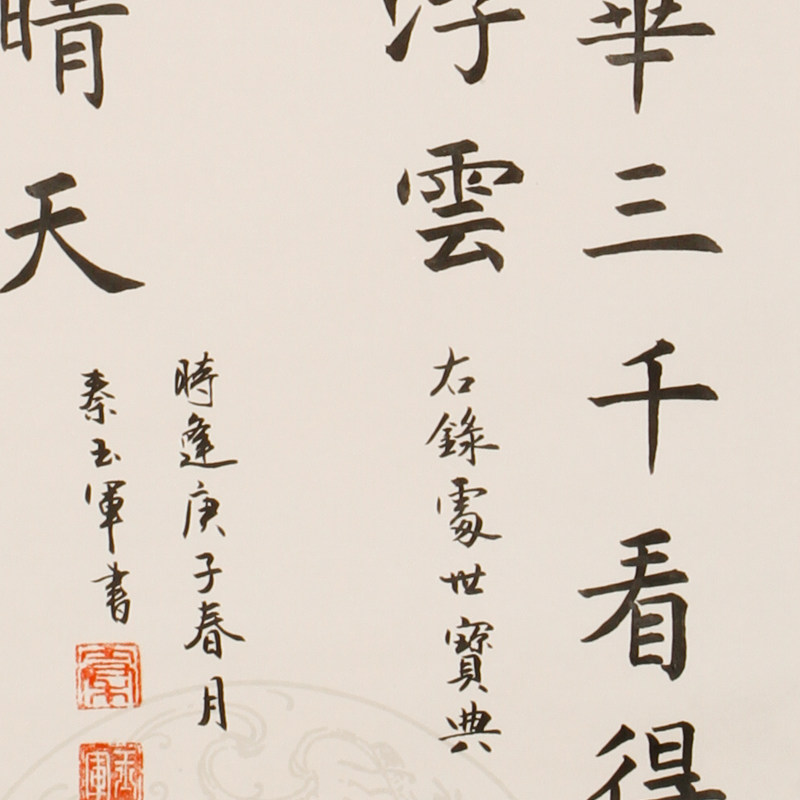 華三千看得
浮雲
右錄處世寶典
時逢庚子春月
晴天
秦玉軍書